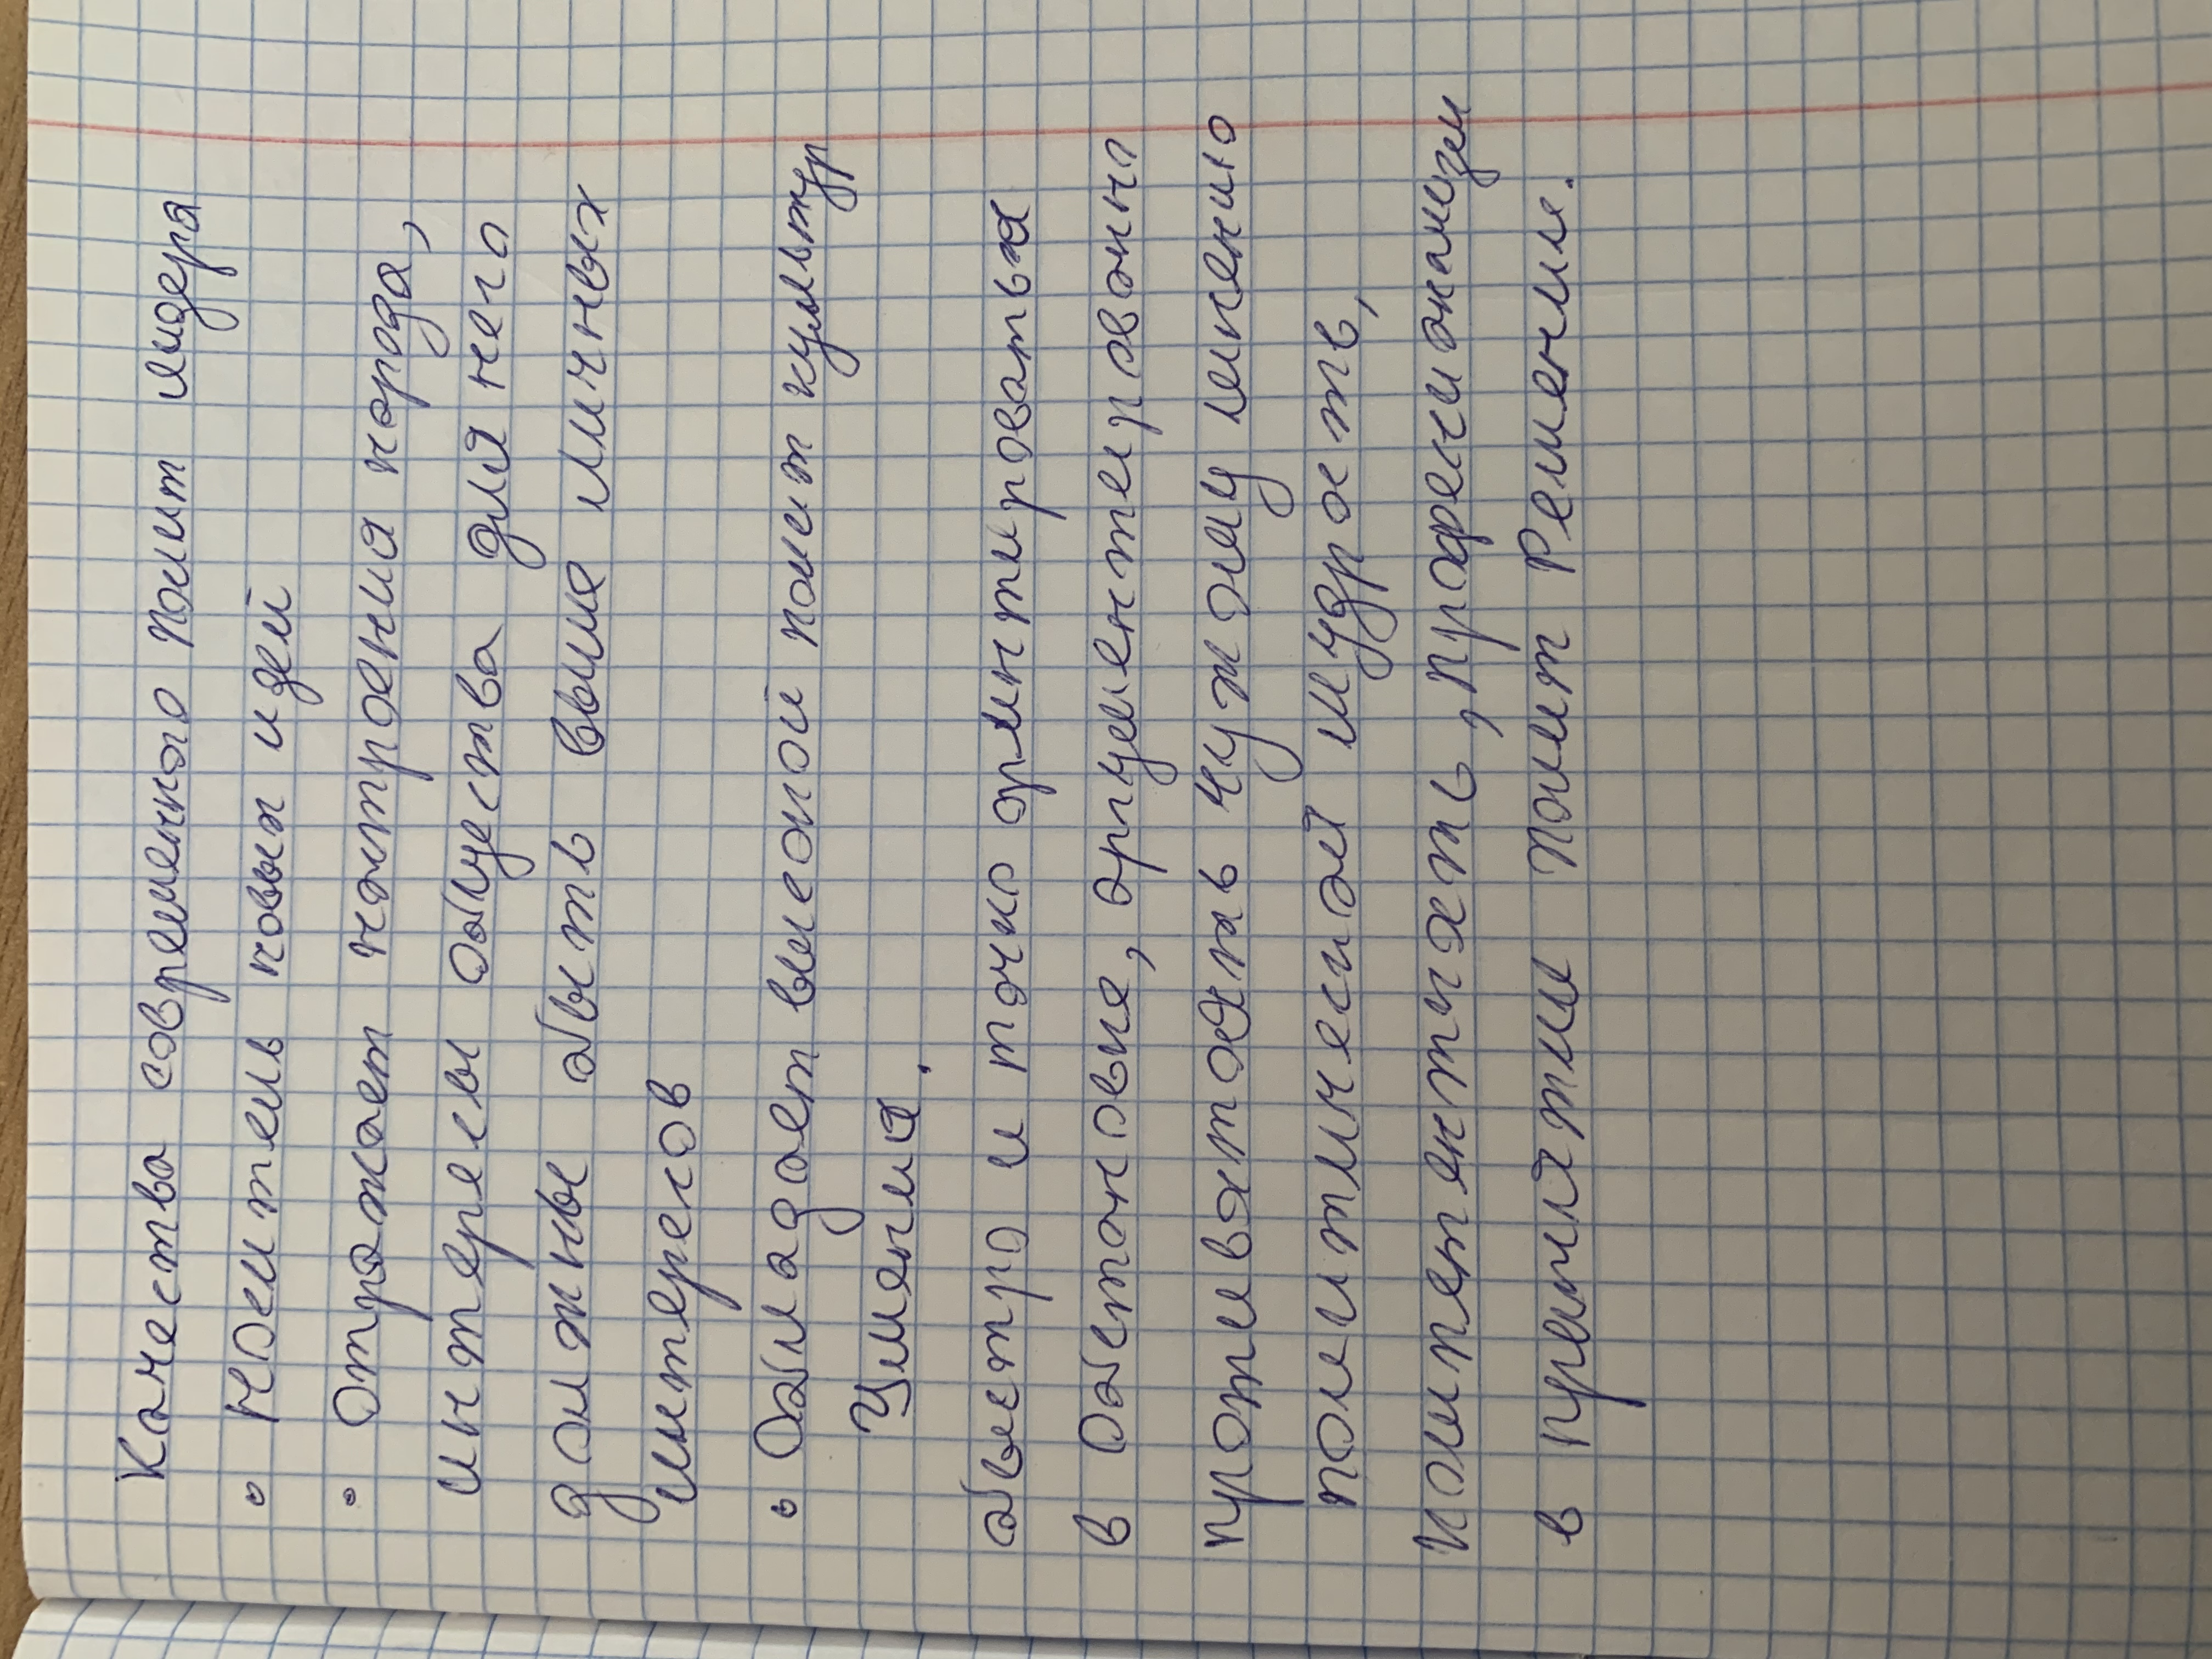 Качества современного полит лидера
• Носитель новых идей
• Отражает настроения народа,
интересы общества для него
должны быть выше личных
интересов
• Обладает высокой полит культур
Умения.
быстро и точно ориентироваться
в обстановке, аргументированно
противостоять чужому мнению
политической мудрость,
компетентность, професионализм
в принятии полит Решении.